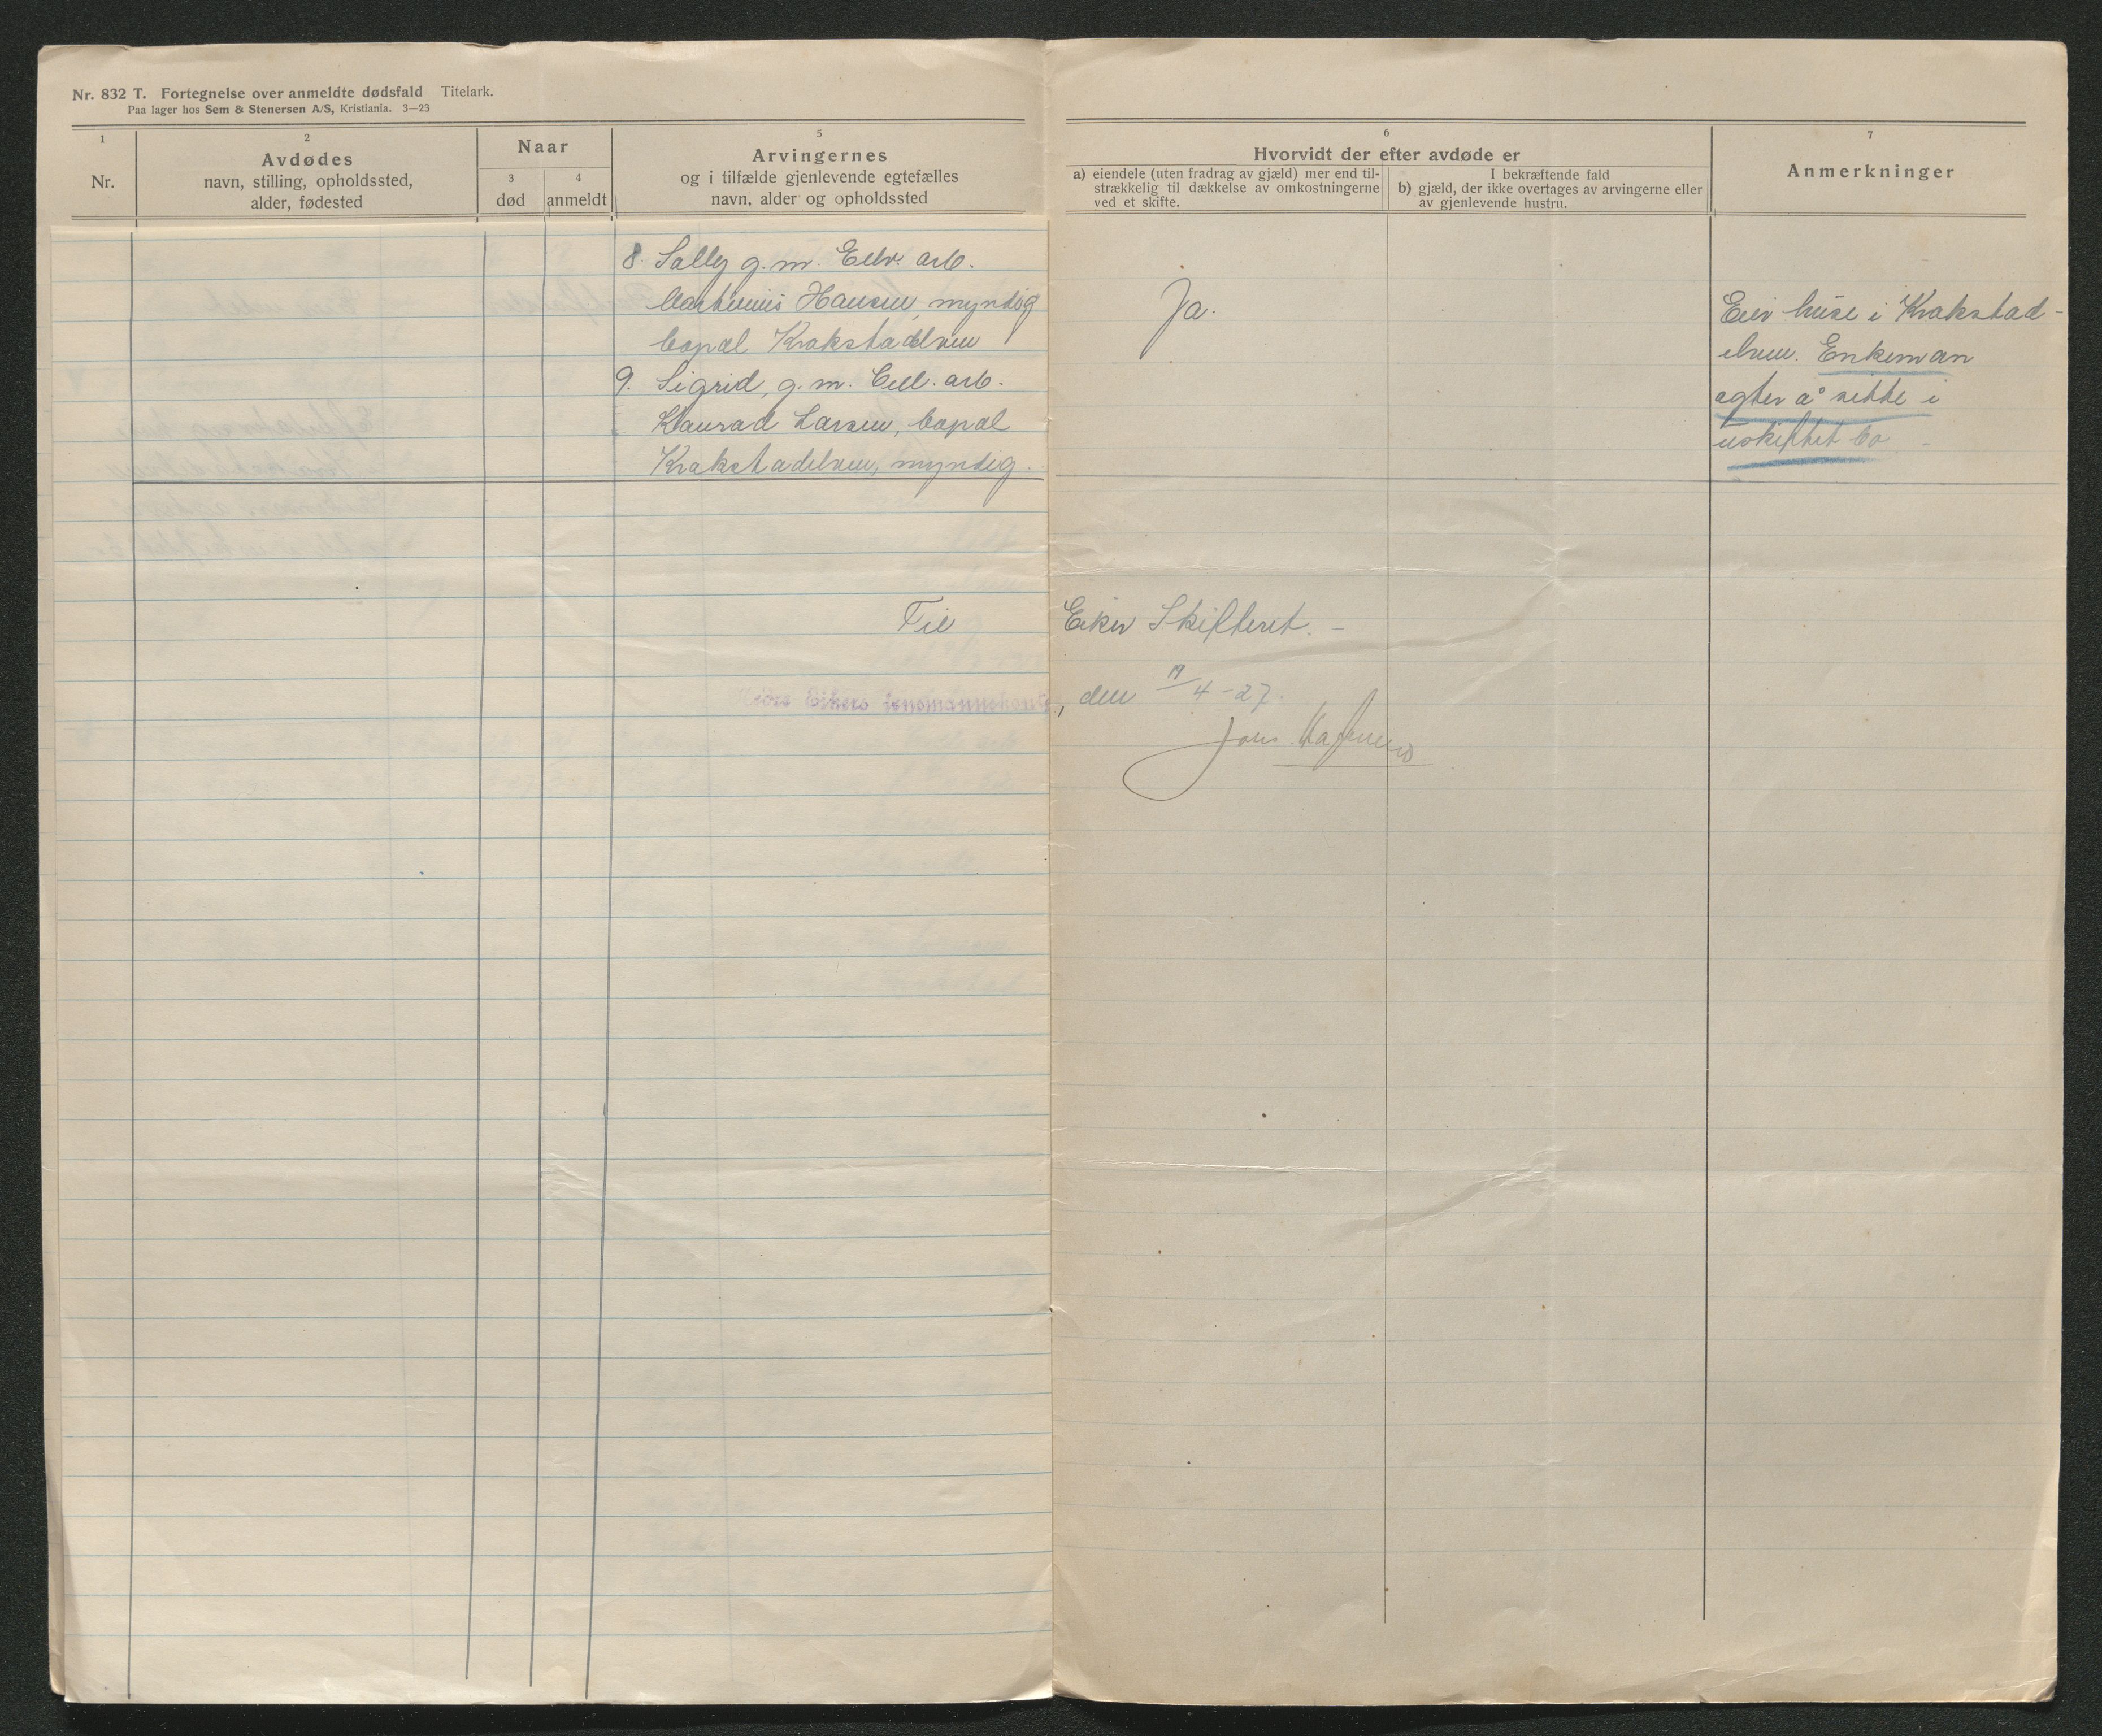 Nr. 832 T. Fortegnelse over anmeldte dødsfald Titelark.
Paa lager hos Sem & Stenersen A/S, Kristiania. 3—23
1
Nr.
2
Avdødes
navn, stilling, opholdssted,
alder, fødested
Naar
3
død
4
anmeldt
5
Arvingernes
og i tilfælde gjenlevende egtefælles
navn, alder og opholdssted
6
Hvorvidt der efter avdøde er
a) eiendele (uten fradrag av gjæld) mer end til-
strækkelig til dækkelse av omkostningerne
ved et skifte.
I bekræftende fald
b) gjæld, der ikke overtages av arvingerne eller
av gjenlevende hustru.
7
Anmerkninger
8. Sally g. m. arb.
Hansen, myndig
bopæl Krokstadelven
9. Sigrid, g. m. Cell. arb.
Konrad Larsen, bopæl
Krokstadelven, myndig.
Ja.
Eier huse i Krokstad-
elven. Enkeman
agter å sitte i
uskiftet bo
Til Eiker Skifteret. –
Nedre Eikers lensmannskontor, den 19/4-27.